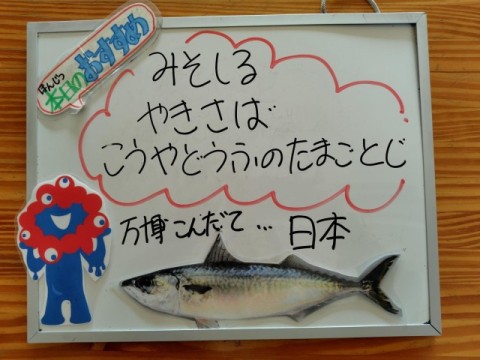 ほんじつ
本日のおすすめ
みそしる
やきさば
こうやどうふのたまごとじ
万博こんだて… 日本